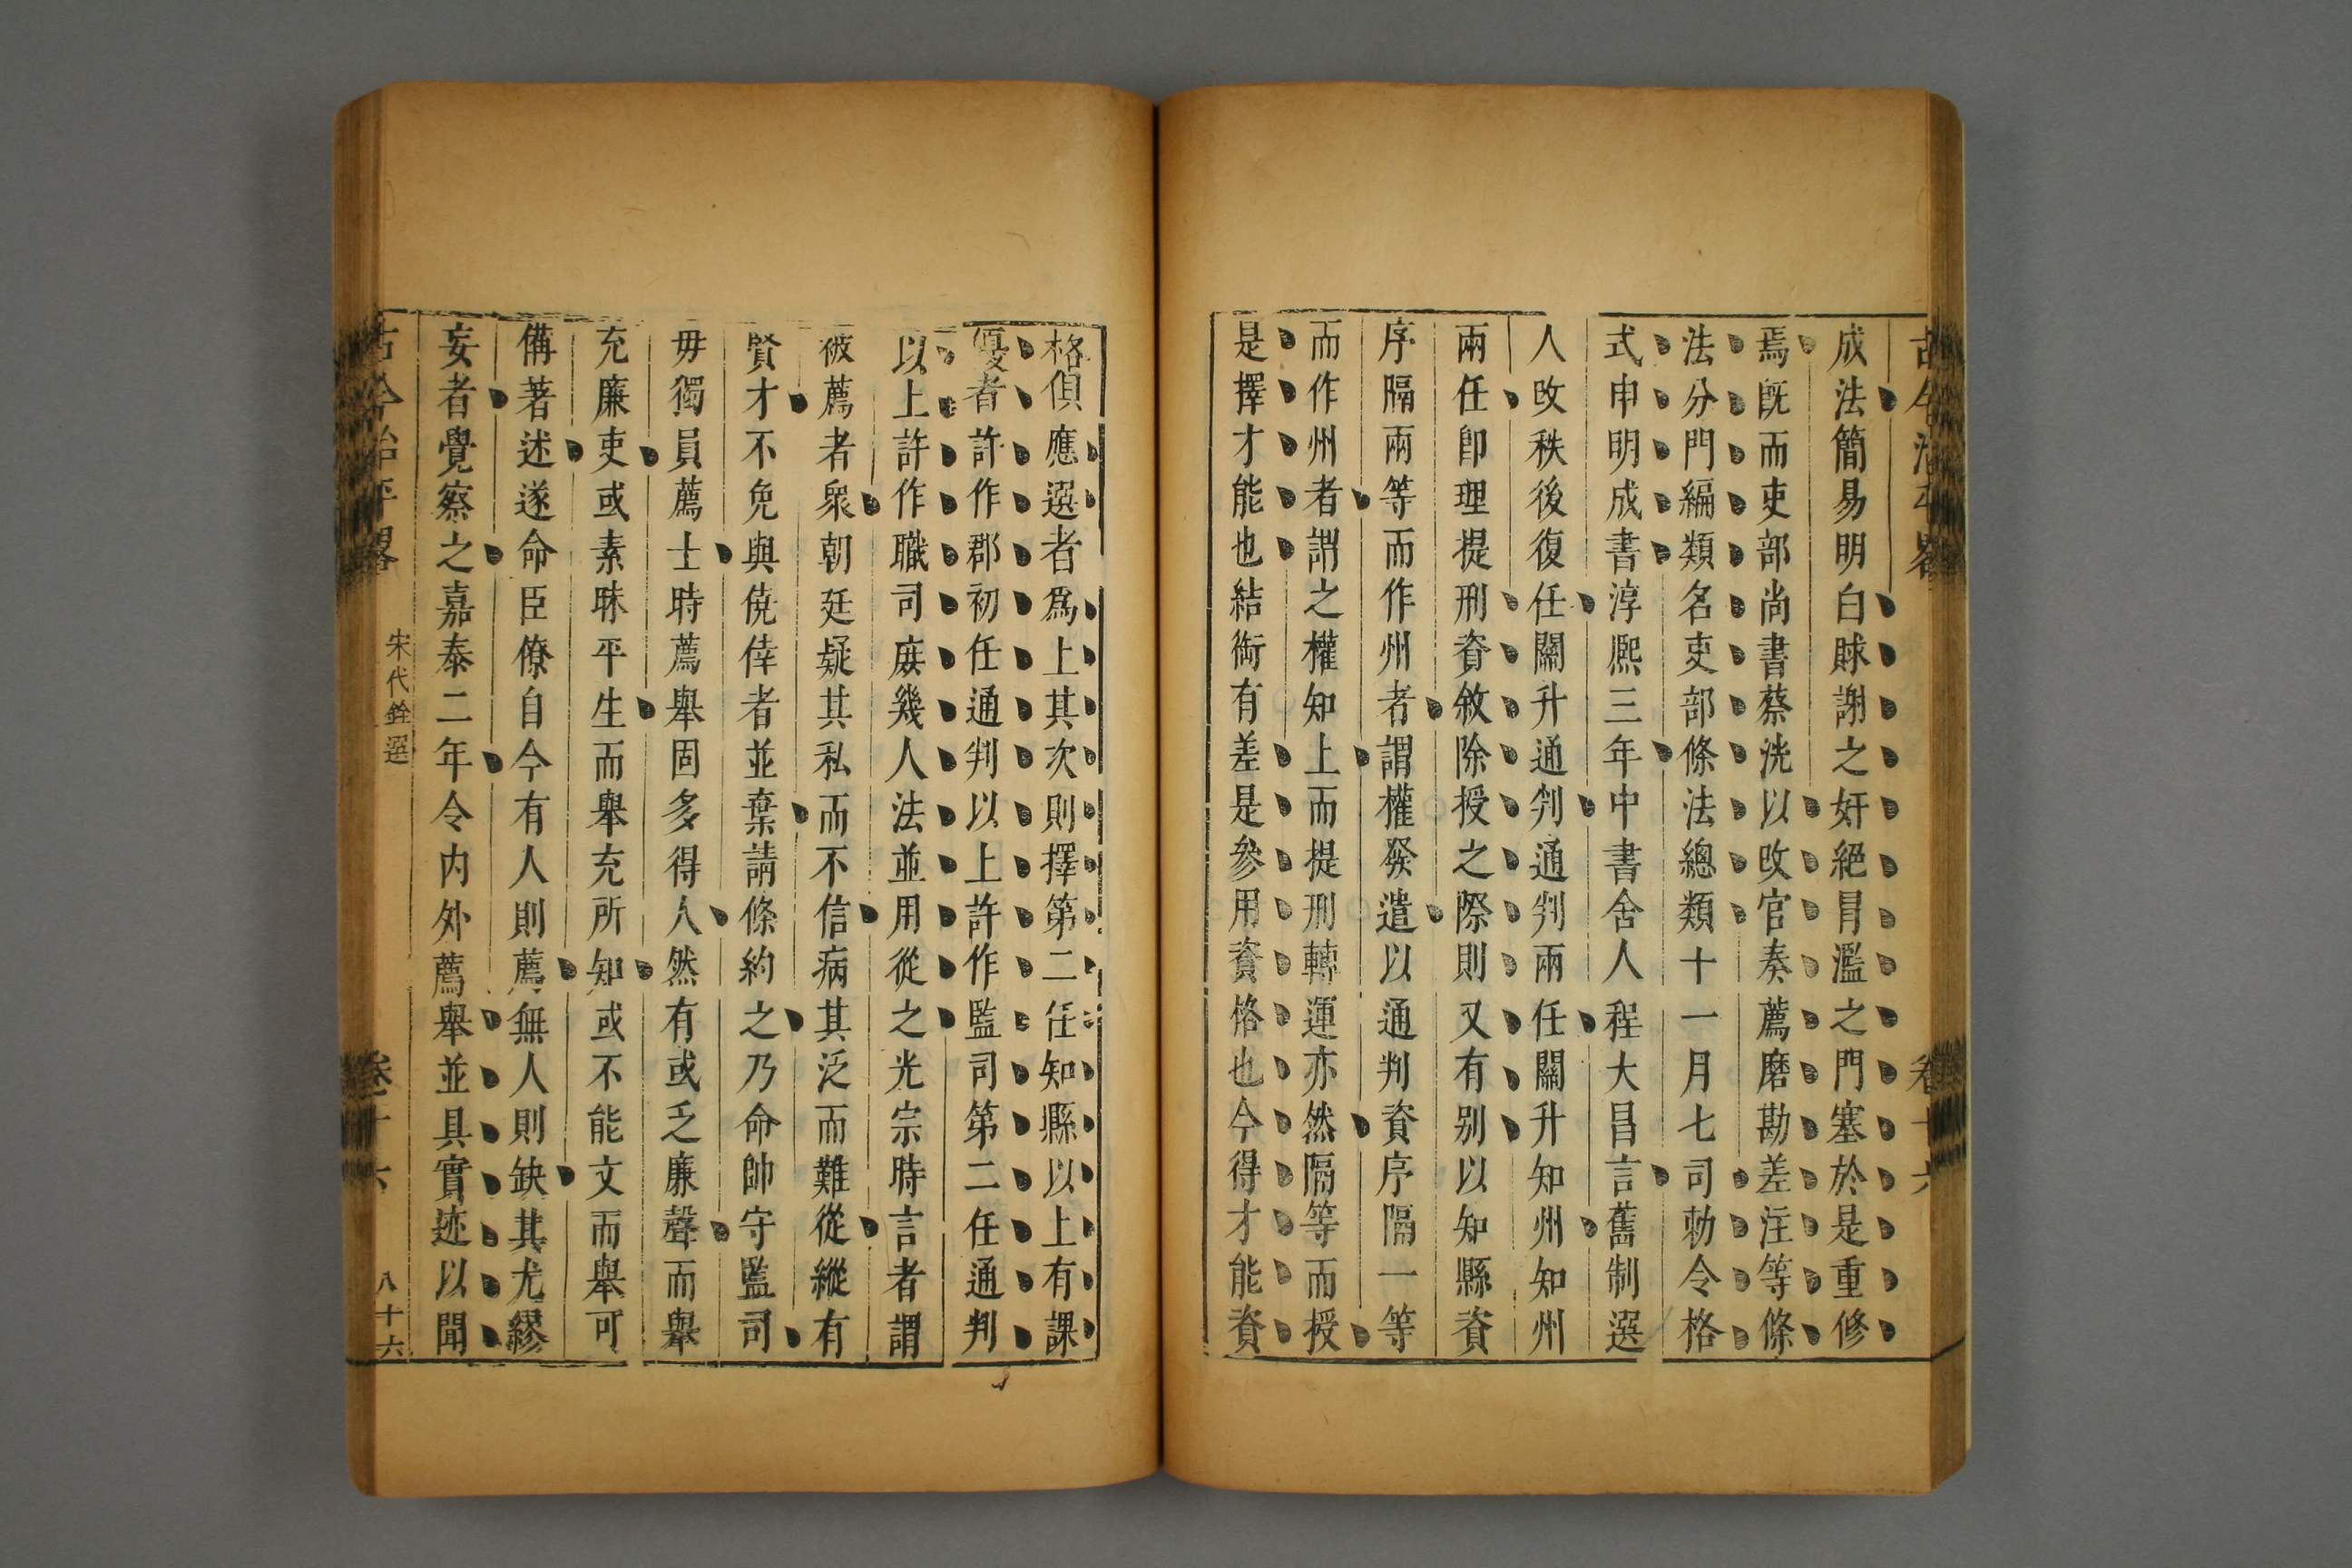 古今治平畧 卷十六
成法簡易明白賕謝之奸絕冐濫之門塞於是重修
焉旣而吏部尚書蔡洸以攺官奏薦磨勘差注等條
法分門編類名吏部條法總類十一月七司勅令格
式申明成書淳熈三年中書舍人程大昌言舊制選
人攺秩後復任關升通判通判兩任關升知州知州
兩任卽理提刑資敘除授之際則又有别以知縣資
序隔兩等而作州者謂權發遣以通判資序隔一等
而作州者謂之權知上而提刑轉運亦然隔等而授
是擇才能也結銜有差是參用資格也今得才能資
格俱應選者爲上其次則擇第二任知縣以上有課
優者許作郡初任通判以上許作監司第二任通判
以上許作職司庻幾人法並用從之光宗時言者謂
被薦者衆朝廷疑其私而不信病其泛而難從縱有
賢才不免與僥倖者並棄請條約之乃命帥守監司
毋獨員薦士時薦舉固多得人然有或乏廉聲而舉
充廉吏或素昧平生而舉充所知或不能文而舉可
備著述遂命臣僚自今有人則薦無人則缺其尤繆
妄者覺察之嘉泰二年令內外薦舉並具實迹以聞
古今治平畧 宋代銓選 卷十六 八十六